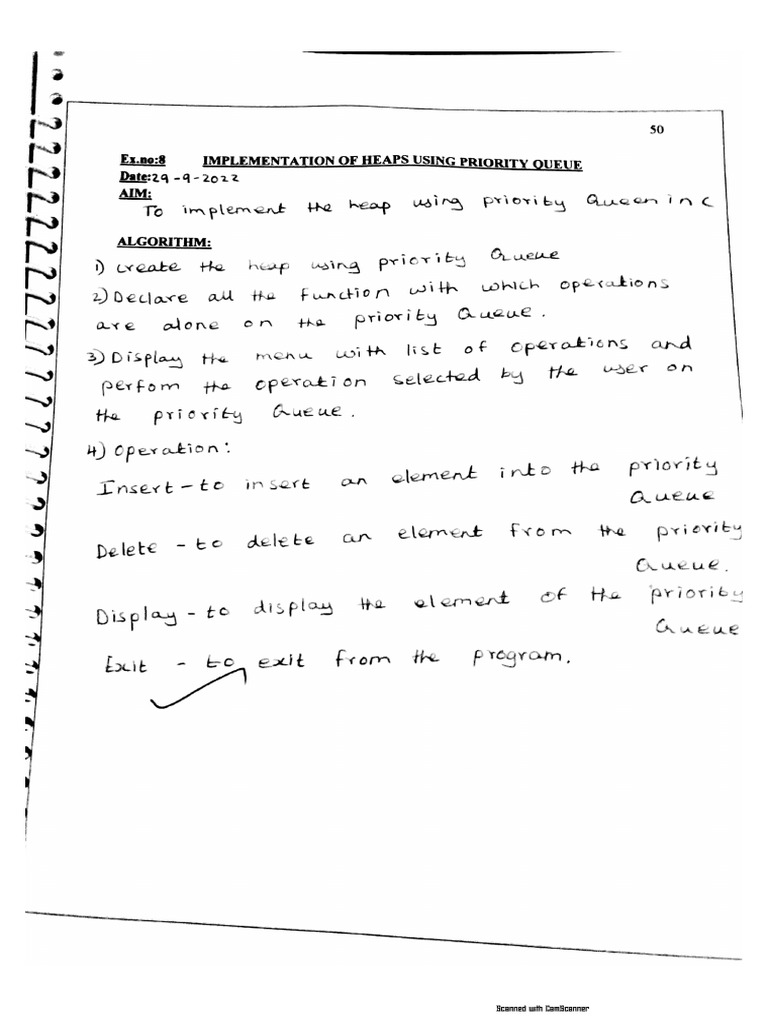 50
Ex.no:8 IMPLEMENTATION OF HEAPS USING PRIORITY QUEUE
Date:29-9-2022
AIM:
To implement the heap using priority Queen in C
ALGORITHM:
1) create the heap using priority Queue
2) Declare all the function with which operations
are alone on the priority Queue.
3) Display the menu with list of operations and
perfom the operation selected by the user on
the priority Queue.
4) Operation:
Insert - to insert an element into the priority
Queue
Delete - to delete an element from the priority
Queue.
Display - to display the element of the priority
Queue
Exit - to exit from the program.
Scanned with CamScanner